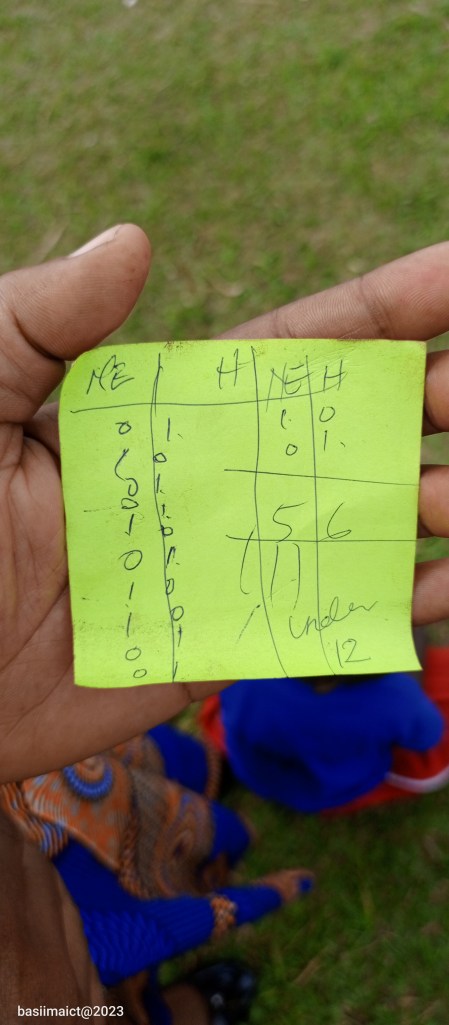 NE H NE H
0 1. 1. 0
0 1.
0 1
0 1
1 0
5 6
0 1
(11)
1 0
1 0
under
0 1
12
0 1
basiimaict@2023